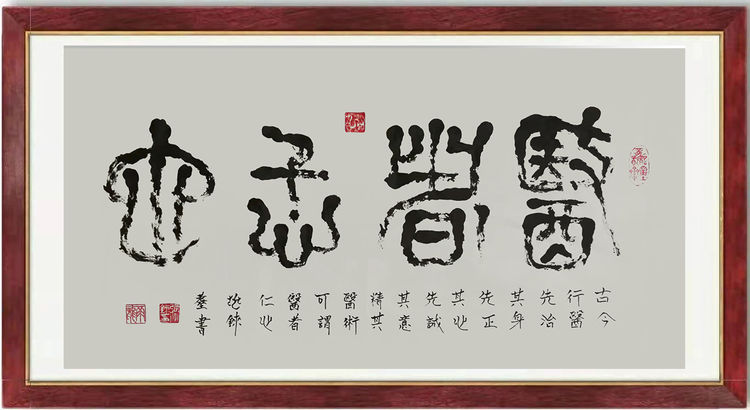 醫者忎心
古今
行醫
先治
其身
先正
其心
先誠
其意
精其
醫術
可謂
醫者
仁心
書